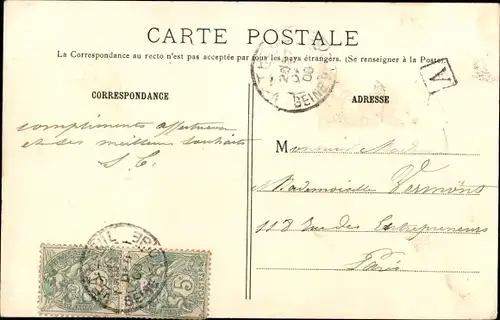 CARTE POSTALE
La Correspondance au recto n'est pas acceptée par tous les pays étrangers. (Se renseigner à la Poste).
CORRESPONDANCE
ADRESSE
A
compliments affectueux
et ses meilleurs souhaits
S. C.
Monsieur
Mademoiselle Vermont
118 Rue des Entrepreneurs
Paris